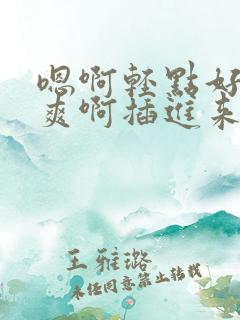 嗯啊輕點好
爽啊插進來
王雅璐
未经同意禁止转载